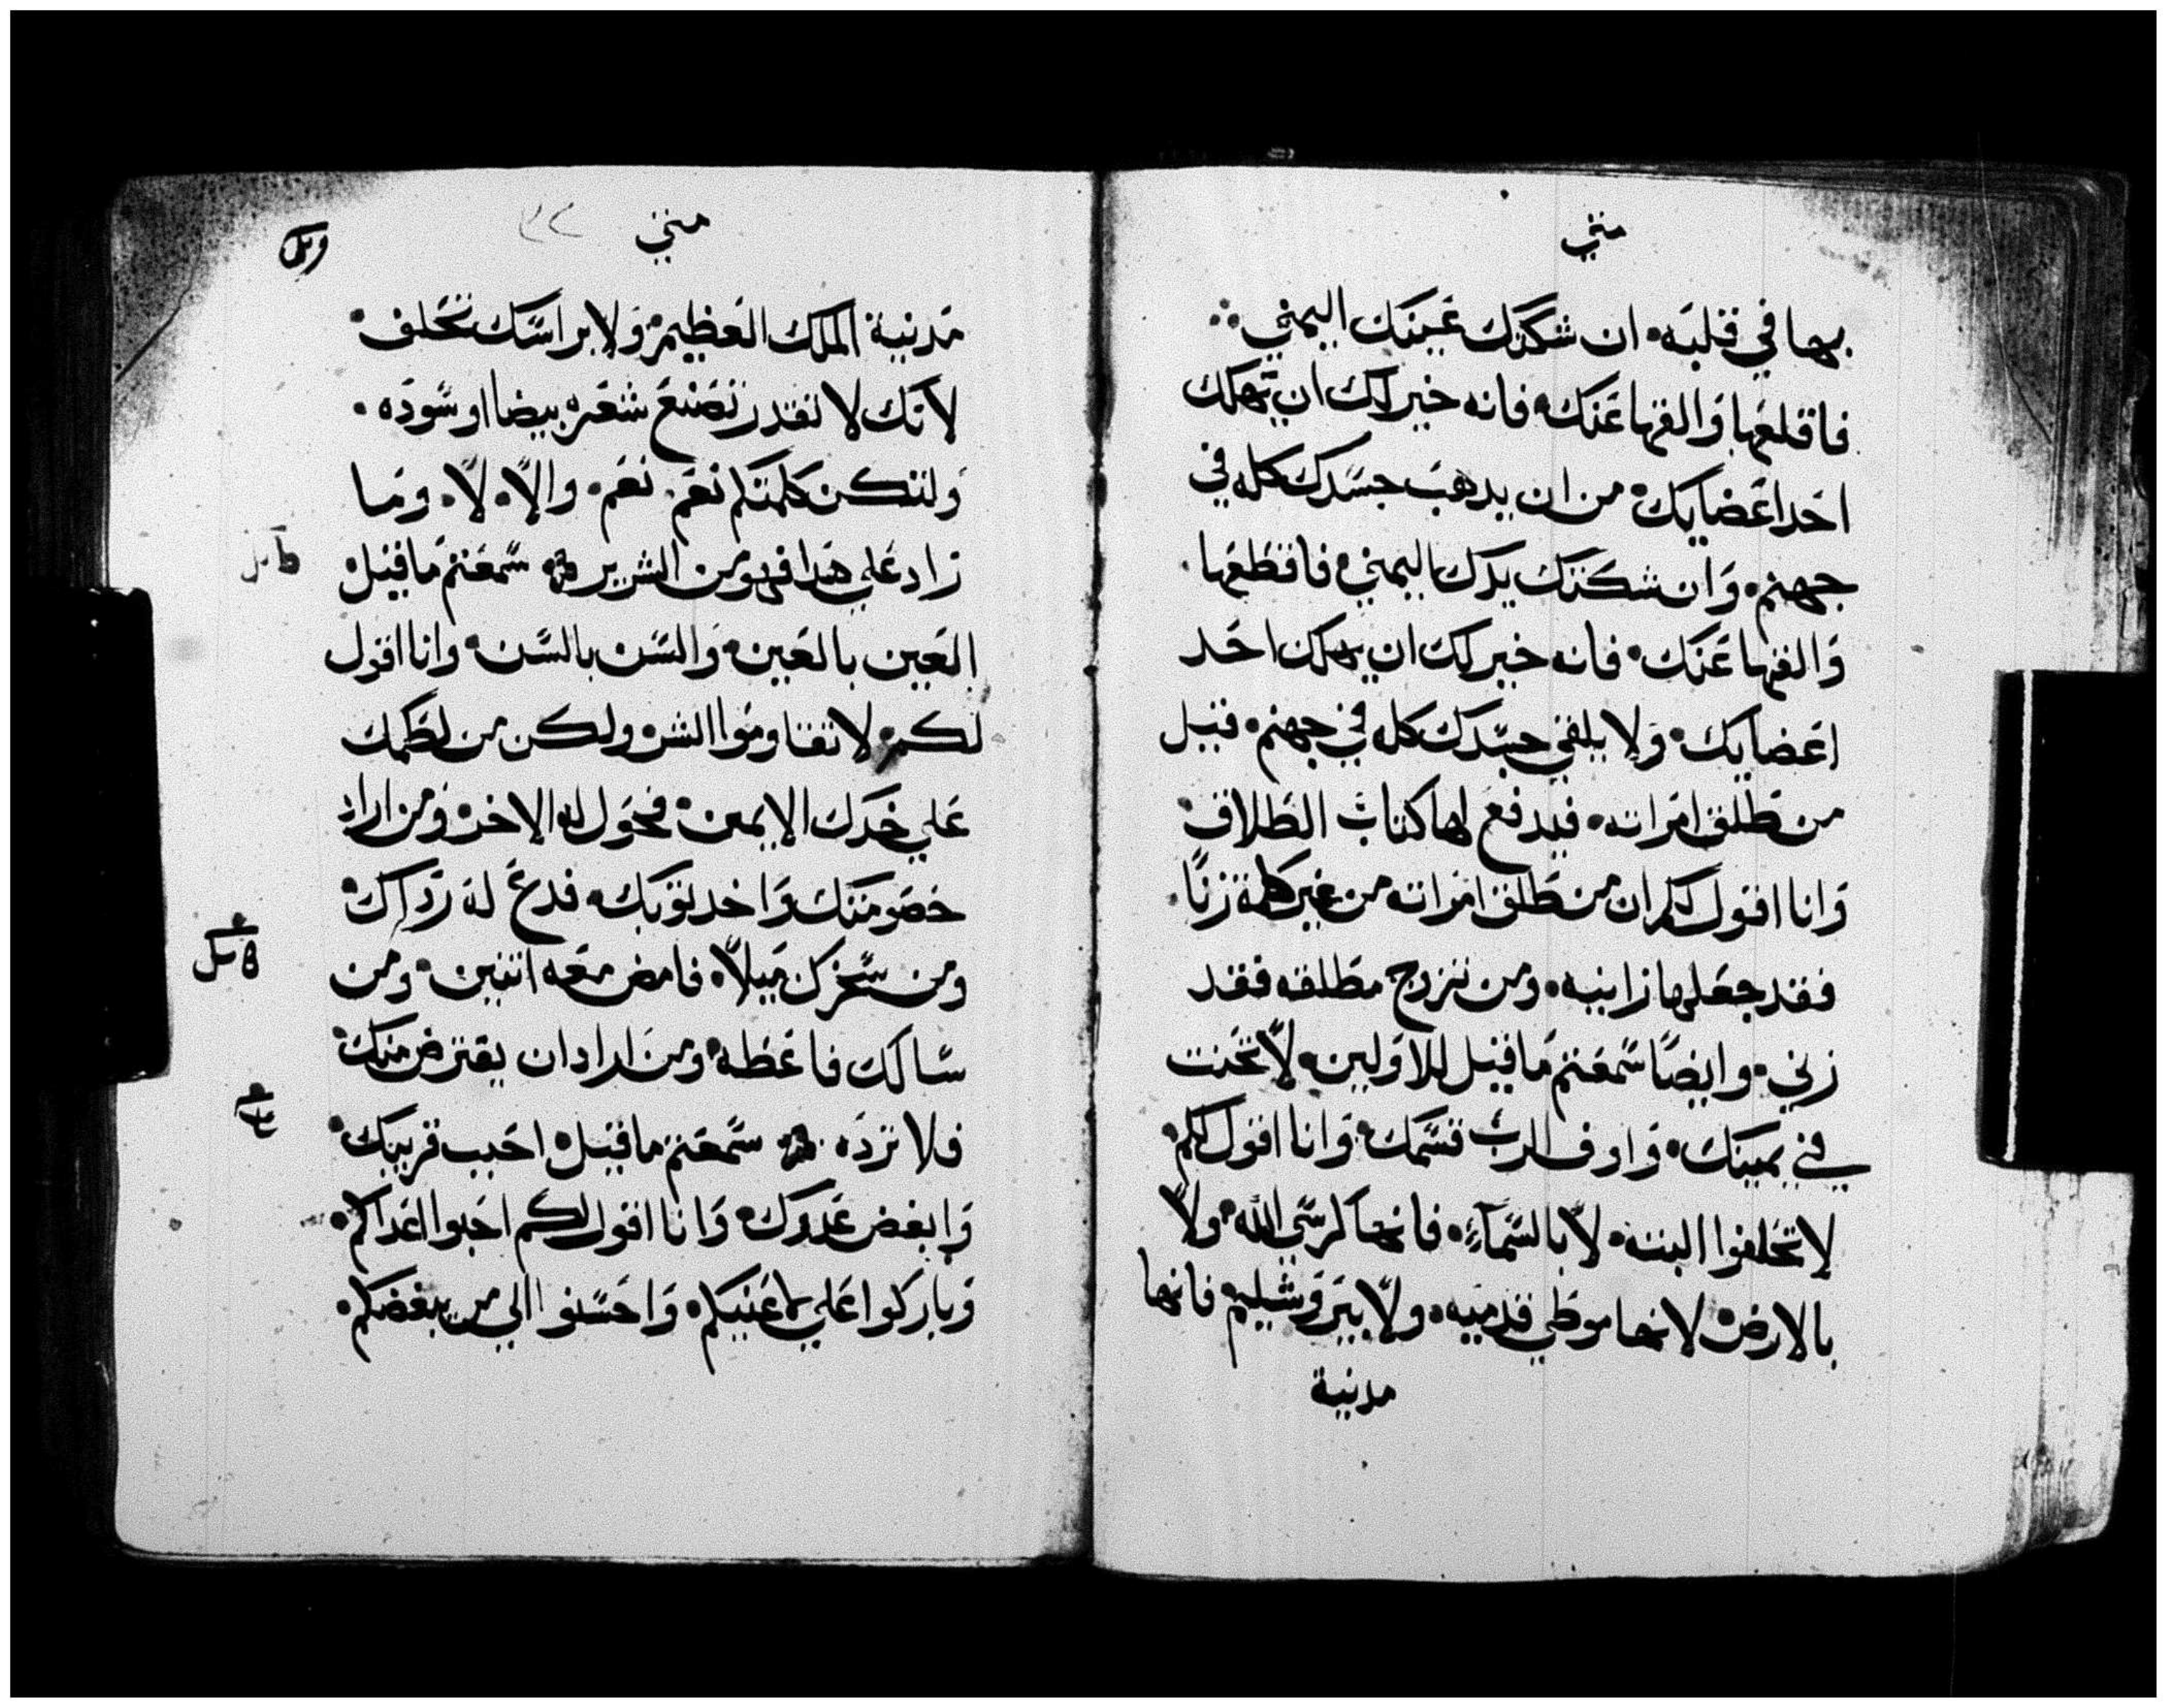 متي
بها في قلبه. ان شككتك عينك اليمني
فاقلعها والقها عنك فانه خير لك ان تهلك
احد اعضايك من ان يدهب جسدك كله في
جهنم. وان شككتك يدك اليمني فاقطعها.
والقها عنك. فانه خير لك ان يهلك احد
اعضايك. ولا يلقي جسدك كله في جهنم. قيل
من طلق امراته. فيدفع لها كتاب الطلاق
وانا اقول لكم ان من طلق امراته من غير كلمة زنا.
فقد جعلها زانيه. ومن تزوج مطلقه فقد
زني. وايضا سمعتم ما قيل للاولين. لا تحنت
في يمينك. واوف الرب قسمك. وانا اقول لكم.
لا تحلفوا البته. لا بالسماء. فانها كرسي الله. ولا
بالارض لانها موطي قدميه. ولا بيروشليم فانها
مدينة
متي
مدينة الملك العظيم. ولا براسك تحلف.
لانك لا تقدر تصنع شعره بيضا او سوده.
ولتكن كلمتكم نعم. نعم. والا. لا. وما
زاد علي هدا فهو من الشرير سمعتم ما قيل
العين بالعين. والسن بالسن. وانا اقول
لكم. لا تقاوموا الشر. ولكن من لطمك
علي خدك الايمين. فحول له الاخر. ومن اراد
خصومتك واخد توبك. فدع له رداك.
ومن سخرك ميلا. فامض معه اتنين. ومن
سالك فاعطه. ومن اراد ان يقترض منك.
فلا ترده سمعتم ما قيل. احبب قريبك.
وابغض عدوك. وانا اقول لكم احبوا اعداكم.
وباركوا علي لاعنيكم. واحسنوا الي من يبغضكم.